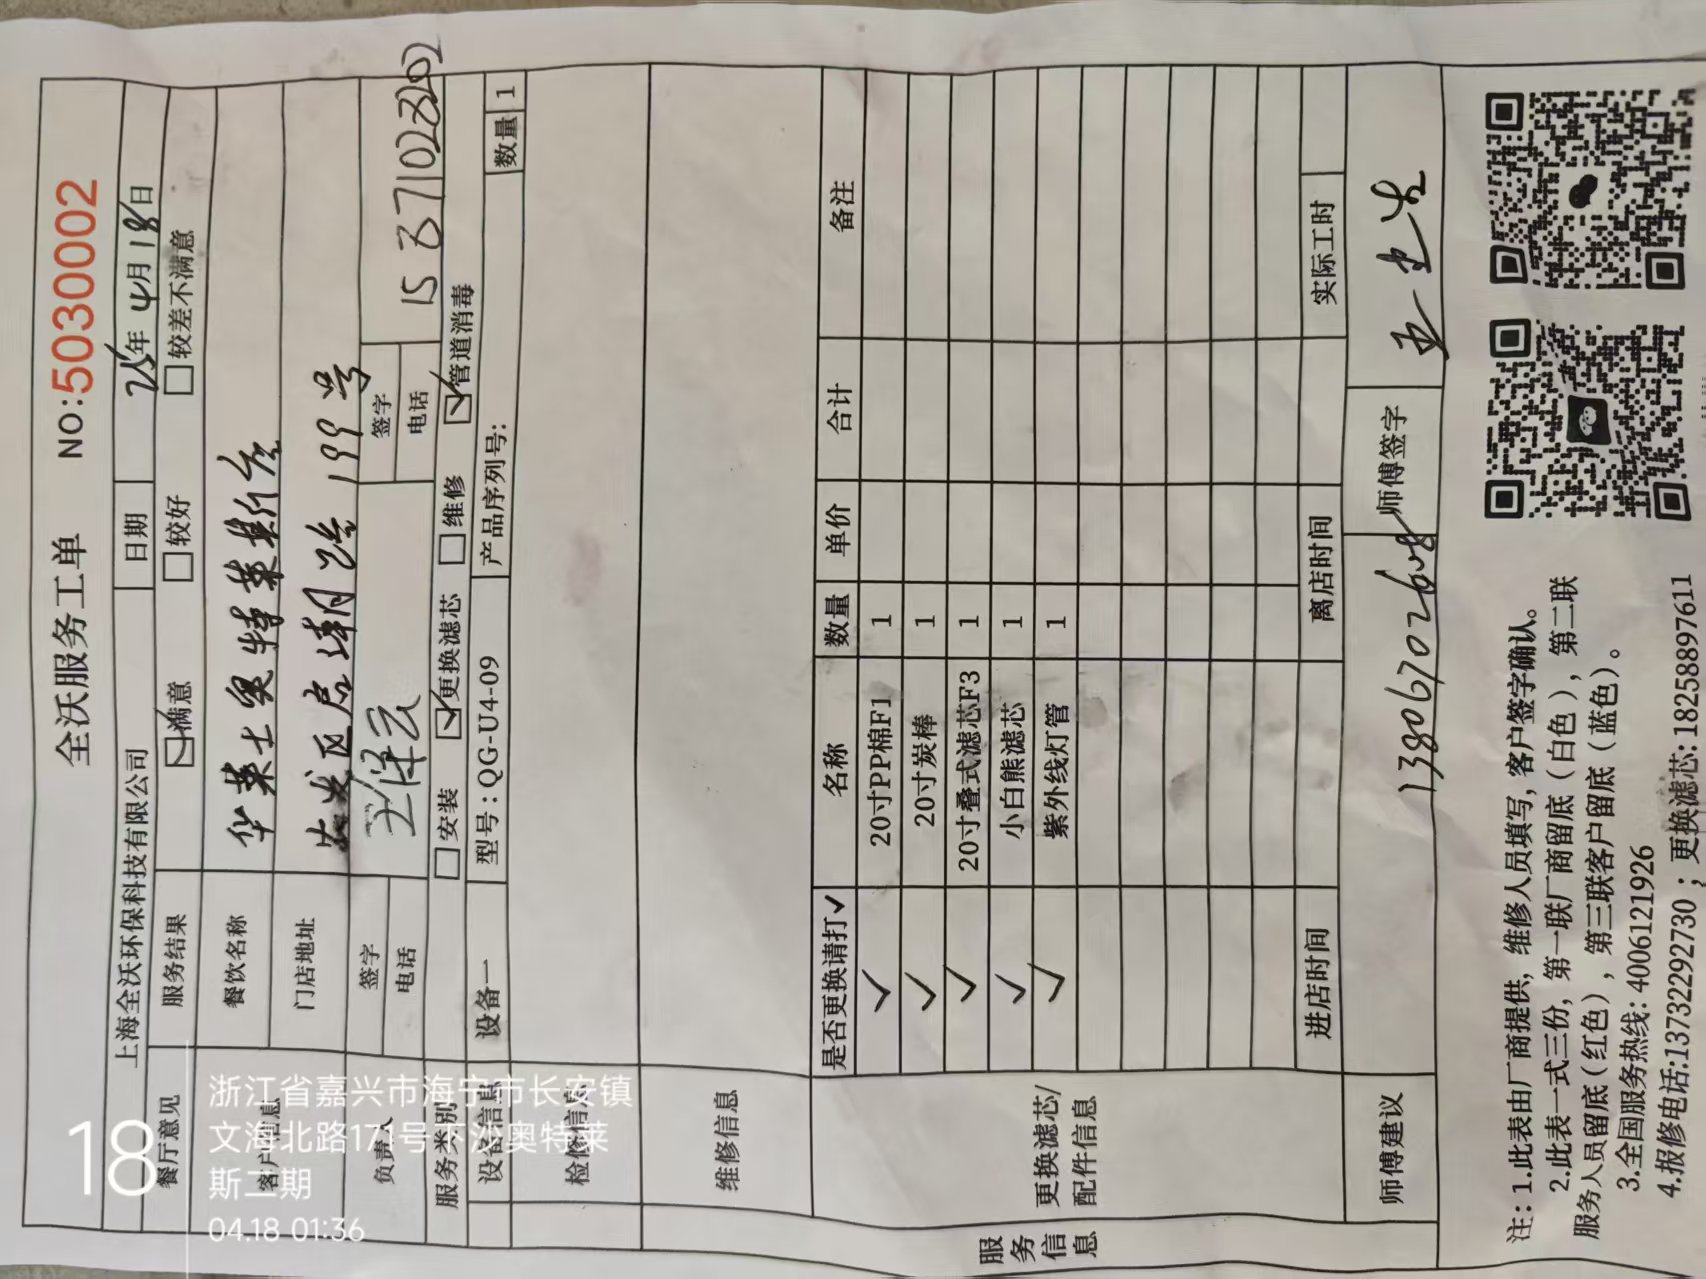 全沃服务工单 NO:5030002
上海全沃环保科技有限公司 日期 25年4月18日
餐厅意见 服务结果 ☑满意 □较好 □较差不满意
客户信息 餐饮名称 华莱士奥特莱斯店
门店地址 199号
负责人 签字 签字
电话 电话 15371023202
服务类别 □安装 ☑更换滤芯 □维修 ☑管道消毒
设备信息 设备一 型号:QG-U4-09 产品序列号: 数量 1
检修信息
维修信息
服务信息
更换滤芯/配件信息
是否更换请打✓ 名称 数量 单价 合计 备注
✓ 20寸PP棉F1 1
✓ 20寸炭棒 1
✓ 20寸叠式滤芯F3 1
✓ 小白熊滤芯 1
✓ 紫外线灯管 1
进店时间 离店时间 实际工时
师傅建议 13806702608 师傅签字
注:1.此表由厂商提供，维修人员填写,客户签字确认。
2.此表一式三份，第一联厂商留底（白色），第二联
服务人员留底（红色），第三联客户留底（蓝色）。
3.全国服务热线:4006121926
4.报修电话:13732292730；更换滤芯:18258897611
18
浙江省嘉兴市海宁市长安镇
文海北路171号
奥特莱
斯二期
04.18 01:36